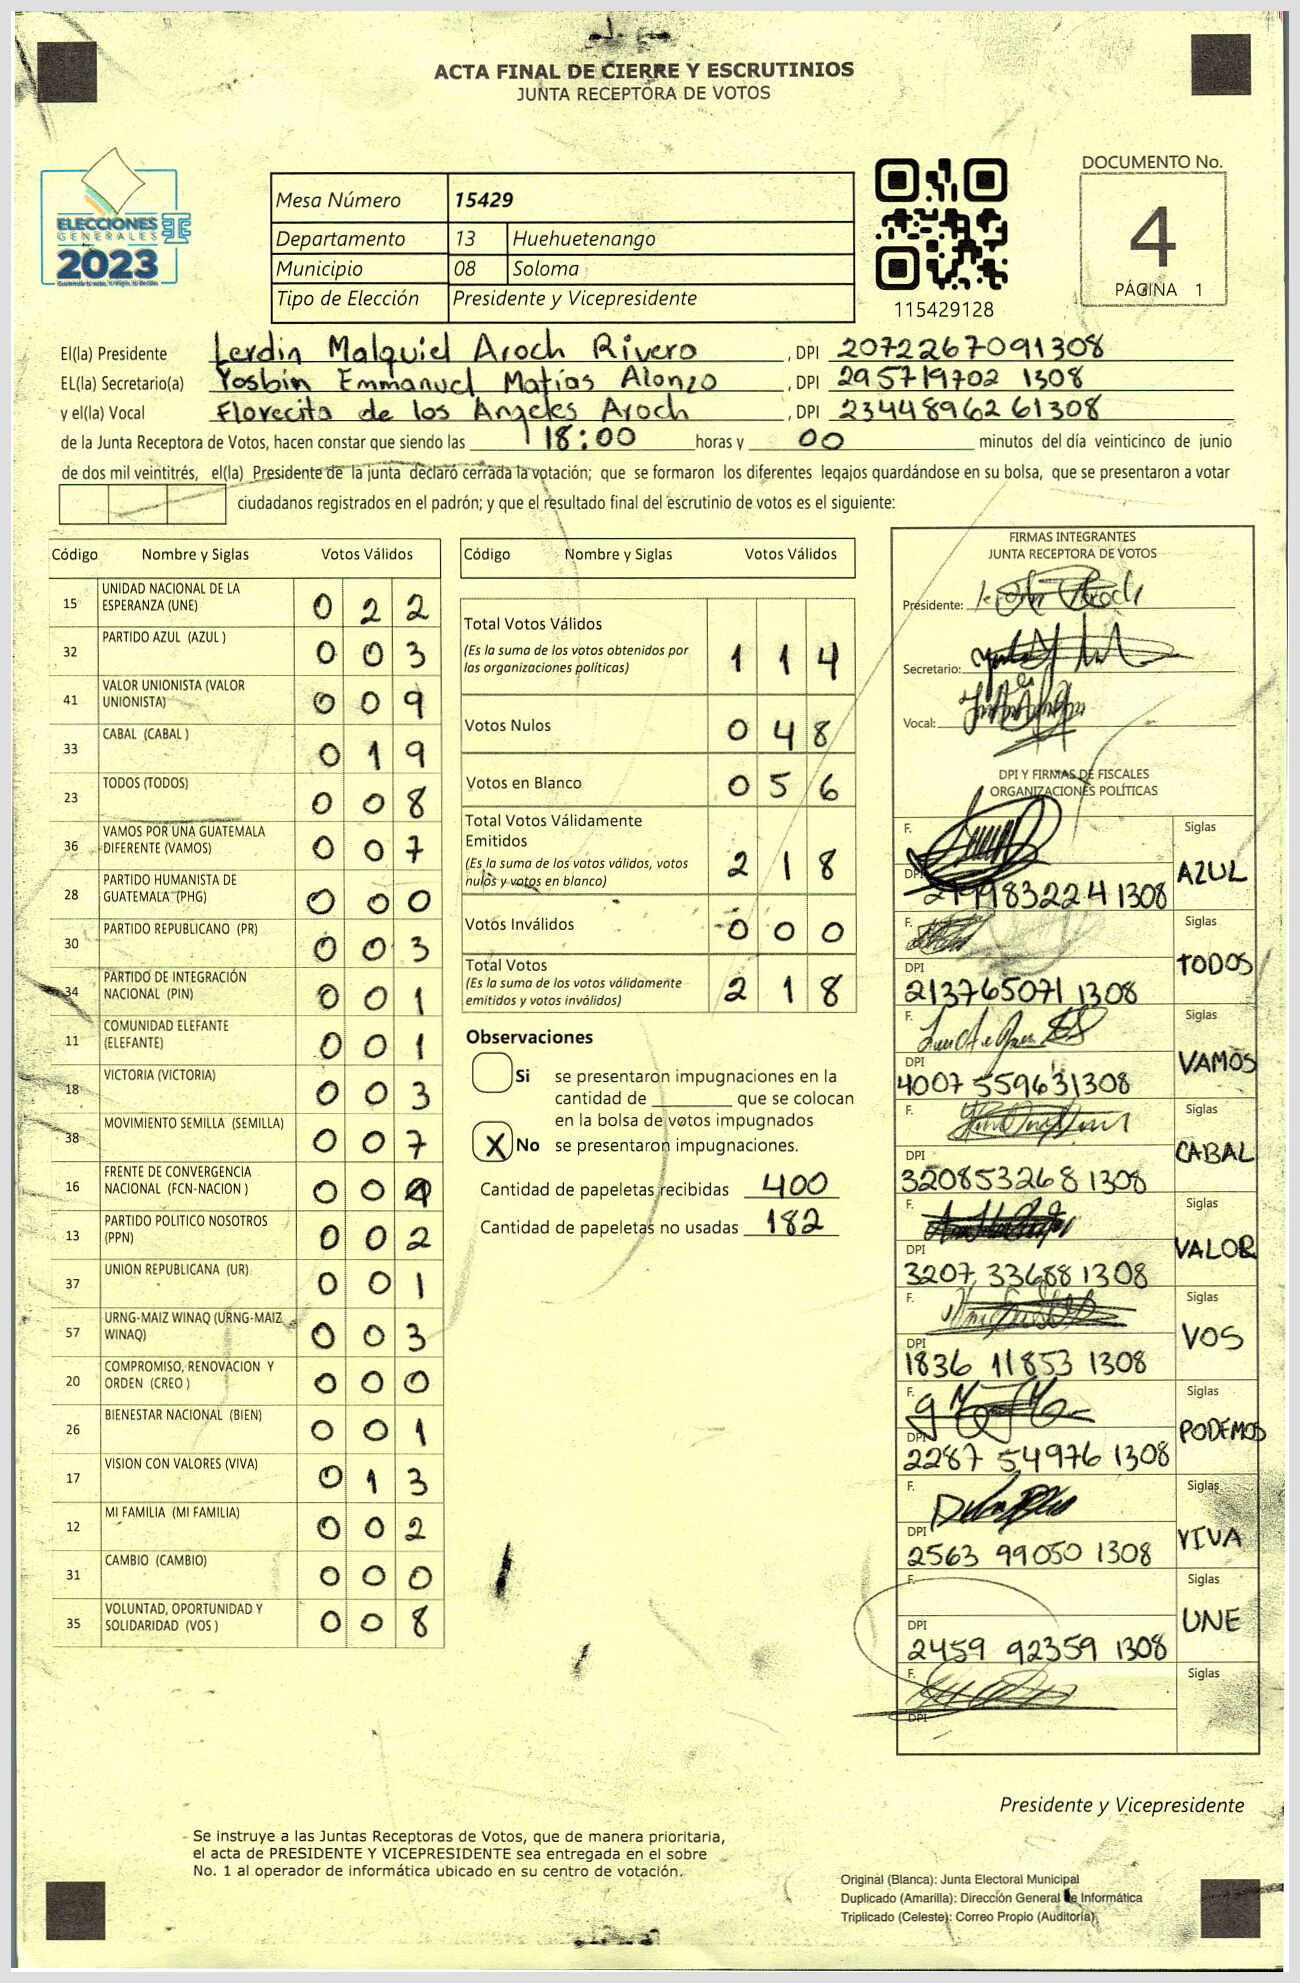 ACTA FINAL DE CIERRE Y ESCRUTINIOS
JUNTA RECEPTORA DE VOTOS
DOCUMENTO No.
4
PÁGINA 1
ELECCIONES
GENERALES
2023
Mesa Número 15429
Departamento 13 Huehuetenango
Municipio 08 Soloma
Tipo de Elección Presidente y Vicepresidente
115429128
El(la) Presidente Lerdin Malquiel Aroch Rivero , DPI 2072267091308
EL(la) Secretario(a) Yosbin Emmanuel Matías Alonzo , DPI 295719702 1308
y el(la) Vocal Florecita de los Angeles Aroch , DPI 2344896261308
de la Junta Receptora de Votos, hacen constar que siendo las 18:00 horas y 00 minutos del día veinticinco de junio
de dos mil veintitrés, el(la) Presidente de la junta declaró cerrada la votación; que se formaron los diferentes legajos quardándose en su bolsa, que se presentaron a votar
ciudadanos registrados en el padrón; y que el resultado final del escrutinio de votos es el siguiente:
Código Nombre y Siglas Votos Válidos
15 UNIDAD NACIONAL DE LA ESPERANZA (UNE) 0 2 2
32 PARTIDO AZUL (AZUL ) 0 0 3
41 VALOR UNIONISTA (VALOR UNIONISTA) 0 0 9
33 CABAL (CABAL ) 0 1 9
23 TODOS (TODOS) 0 0 8
36 VAMOS POR UNA GUATEMALA DIFERENTE (VAMOS) 0 0 7
28 PARTIDO HUMANISTA DE GUATEMALA (PHG) 0 0 0
30 PARTIDO REPUBLICANO (PR) 0 0 3
34 PARTIDO DE INTEGRACIÓN NACIONAL (PIN) 0 0 1
11 COMUNIDAD ELEFANTE (ELEFANTE) 0 0 1
18 VICTORIA (VICTORIA) 0 0 3
38 MOVIMIENTO SEMILLA (SEMILLA) 0 0 7
16 FRENTE DE CONVERGENCIA NACIONAL (FCN-NACION ) 0 0
13 PARTIDO POLITICO NOSOTROS (PPN) 0 0 2
37 UNION REPUBLICANA (UR) 0 0 1
57 URNG-MAIZ WINAQ (URNG-MAIZ WINAQ) 0 0 3
20 COMPROMISO, RENOVACION Y ORDEN (CREO ) 0 0 0
26 BIENESTAR NACIONAL (BIEN) 0 0 1
17 VISION CON VALORES (VIVA) 0 1 3
12 MI FAMILIA (MI FAMILIA) 0 0 2
31 CAMBIO (CAMBIO) 0 0 0
35 VOLUNTAD, OPORTUNIDAD Y SOLIDARIDAD (VOS ) 0 0 8
Código Nombre y Siglas Votos Válidos
Total Votos Válidos
(Es la suma de los votos obtenidos por
las organizaciones políticas) 1 1 4
Votos Nulos 0 4 8
Votos en Blanco 0 5 6
Total Votos Válidamente
Emitidos
(Es la suma de los votos válidos, votos
nulos y votos en blanco) 2 1 8
Votos Inválidos 0 0 0
Total Votos
(Es la suma de los votos válidamente
emitidos y votos inválidos) 2 1 8
Observaciones
Si se presentaron impugnaciones en la
cantidad de ________ que se colocan
en la bolsa de votos impugnados
X No se presentaron impugnaciones.
Cantidad de papeletas recibidas 400
Cantidad de papeletas no usadas 182
FIRMAS INTEGRANTES
JUNTA RECEPTORA DE VOTOS
Presidente:
Secretario:
Vocal:
DPI Y FIRMAS DE FISCALES
ORGANIZACIONES POLÍTICAS
F. Siglas
DPI 1308 AZUL
F. Siglas
DPI 213765071 1308 TODOS
F. Siglas
DPI 4007 559631308 VAMOS
F. Siglas
DPI 320853268 1308 CABAL
F. Siglas
DPI 3207 33688 1308 VALOR
F. Siglas
DPI 1836 11853 1308 VOS
F. Siglas
DPI 2287 54976 1308 PODEMOS
F. Siglas
DPI 2563 99050 1308 VIVA
F. Siglas
DPI 2459 92359 1308 UNE
F. Siglas
DPI
Presidente y Vicepresidente
Se instruye a las Juntas Receptoras de Votos, que de manera prioritaria,
el acta de PRESIDENTE Y VICEPRESIDENTE sea entregada en el sobre
No. 1 al operador de informática ubicado en su centro de votación.
Original (Blanca): Junta Electoral Municipal
Duplicado (Amarilla): Dirección General de Informática
Triplicado (Celeste): Correo Propio (Auditoría)